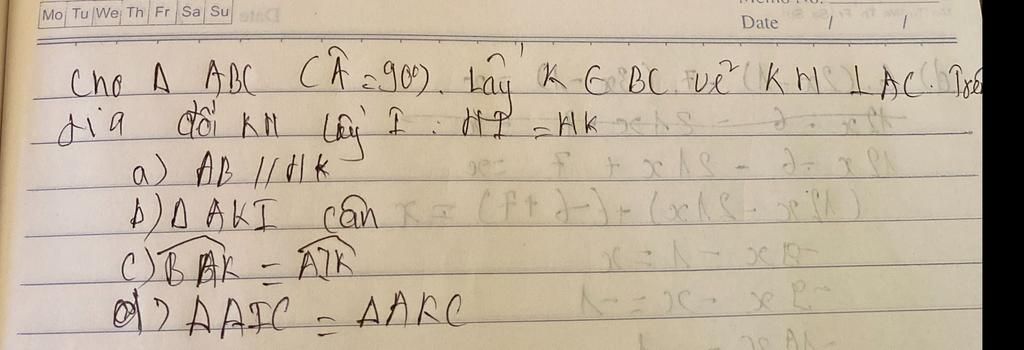 Mo Tu We Th Fr Sa Su
Memo No.
Date / /
Cho Δ ABC (Â = 90°). Lấy K ∈ BC. vẽ KH ⊥ AC. Trê
tia đối KH lấy I : HI = HK
a) AB // HK
b) Δ AKI cân
c) BAK = AIK
d) ΔAIC = ΔAKC